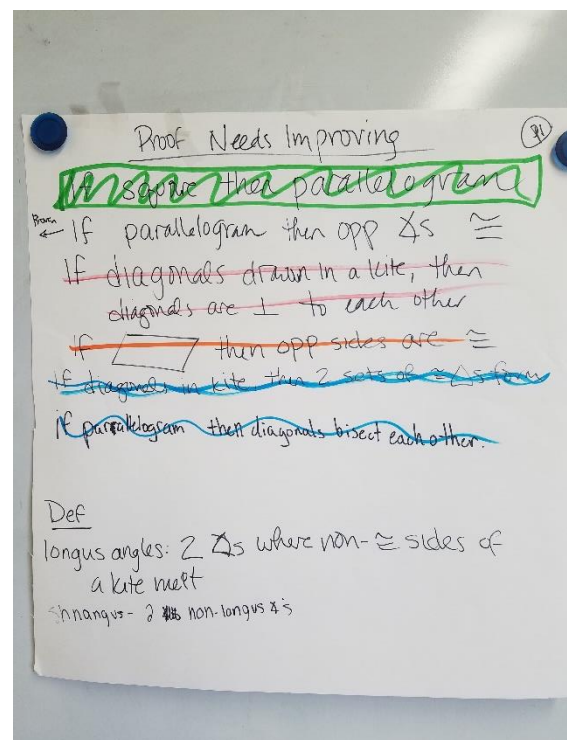 Proof Needs Improving
If square then parallelogram
Proven
← If parallelogram then opp ∡s ≅
If diagonals drawn in a kite, then
diagonals are ⊥ to each other
If ▱ then opp sides are ≅
If diagonals in kite then 2 sets of ≅ △s form
if parallelogram then diagonals bisect each other.
Def
longus angles: 2 ∡s where non-≅ sides of
a kite meet
2 non-longus ∡'s